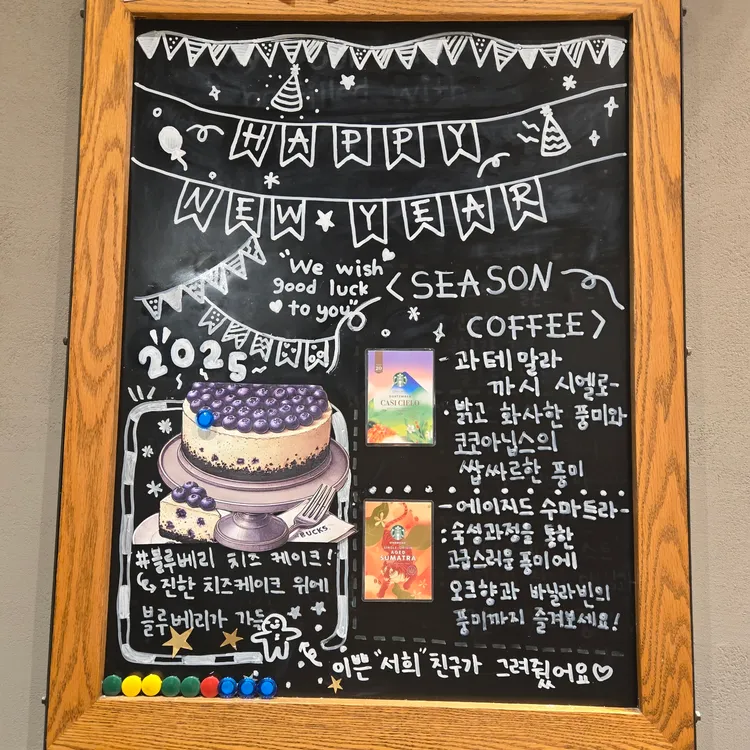 HAPPY
NEW YEAR
"We wish
good luck
to you"
2025
<SEASON
COFFEE>
CASI CIELO
- 과테말라
까시 시엘로-
밝고 화사한 풍미와
코코아닙스의
쌉싸르한 풍미
-에이지드 수마트라-
:숙성과정을 통한
고급스러운 풍미에
오크향과 바닐라빈의
풍미까지 즐겨보세요!
AGED
SUMATRA
BUCKS
#블루베리 치즈 케이크!
진한 치즈케이크 위에
블루베리가 가득
이쁜 "서희" 친구가 그려줬어요♡